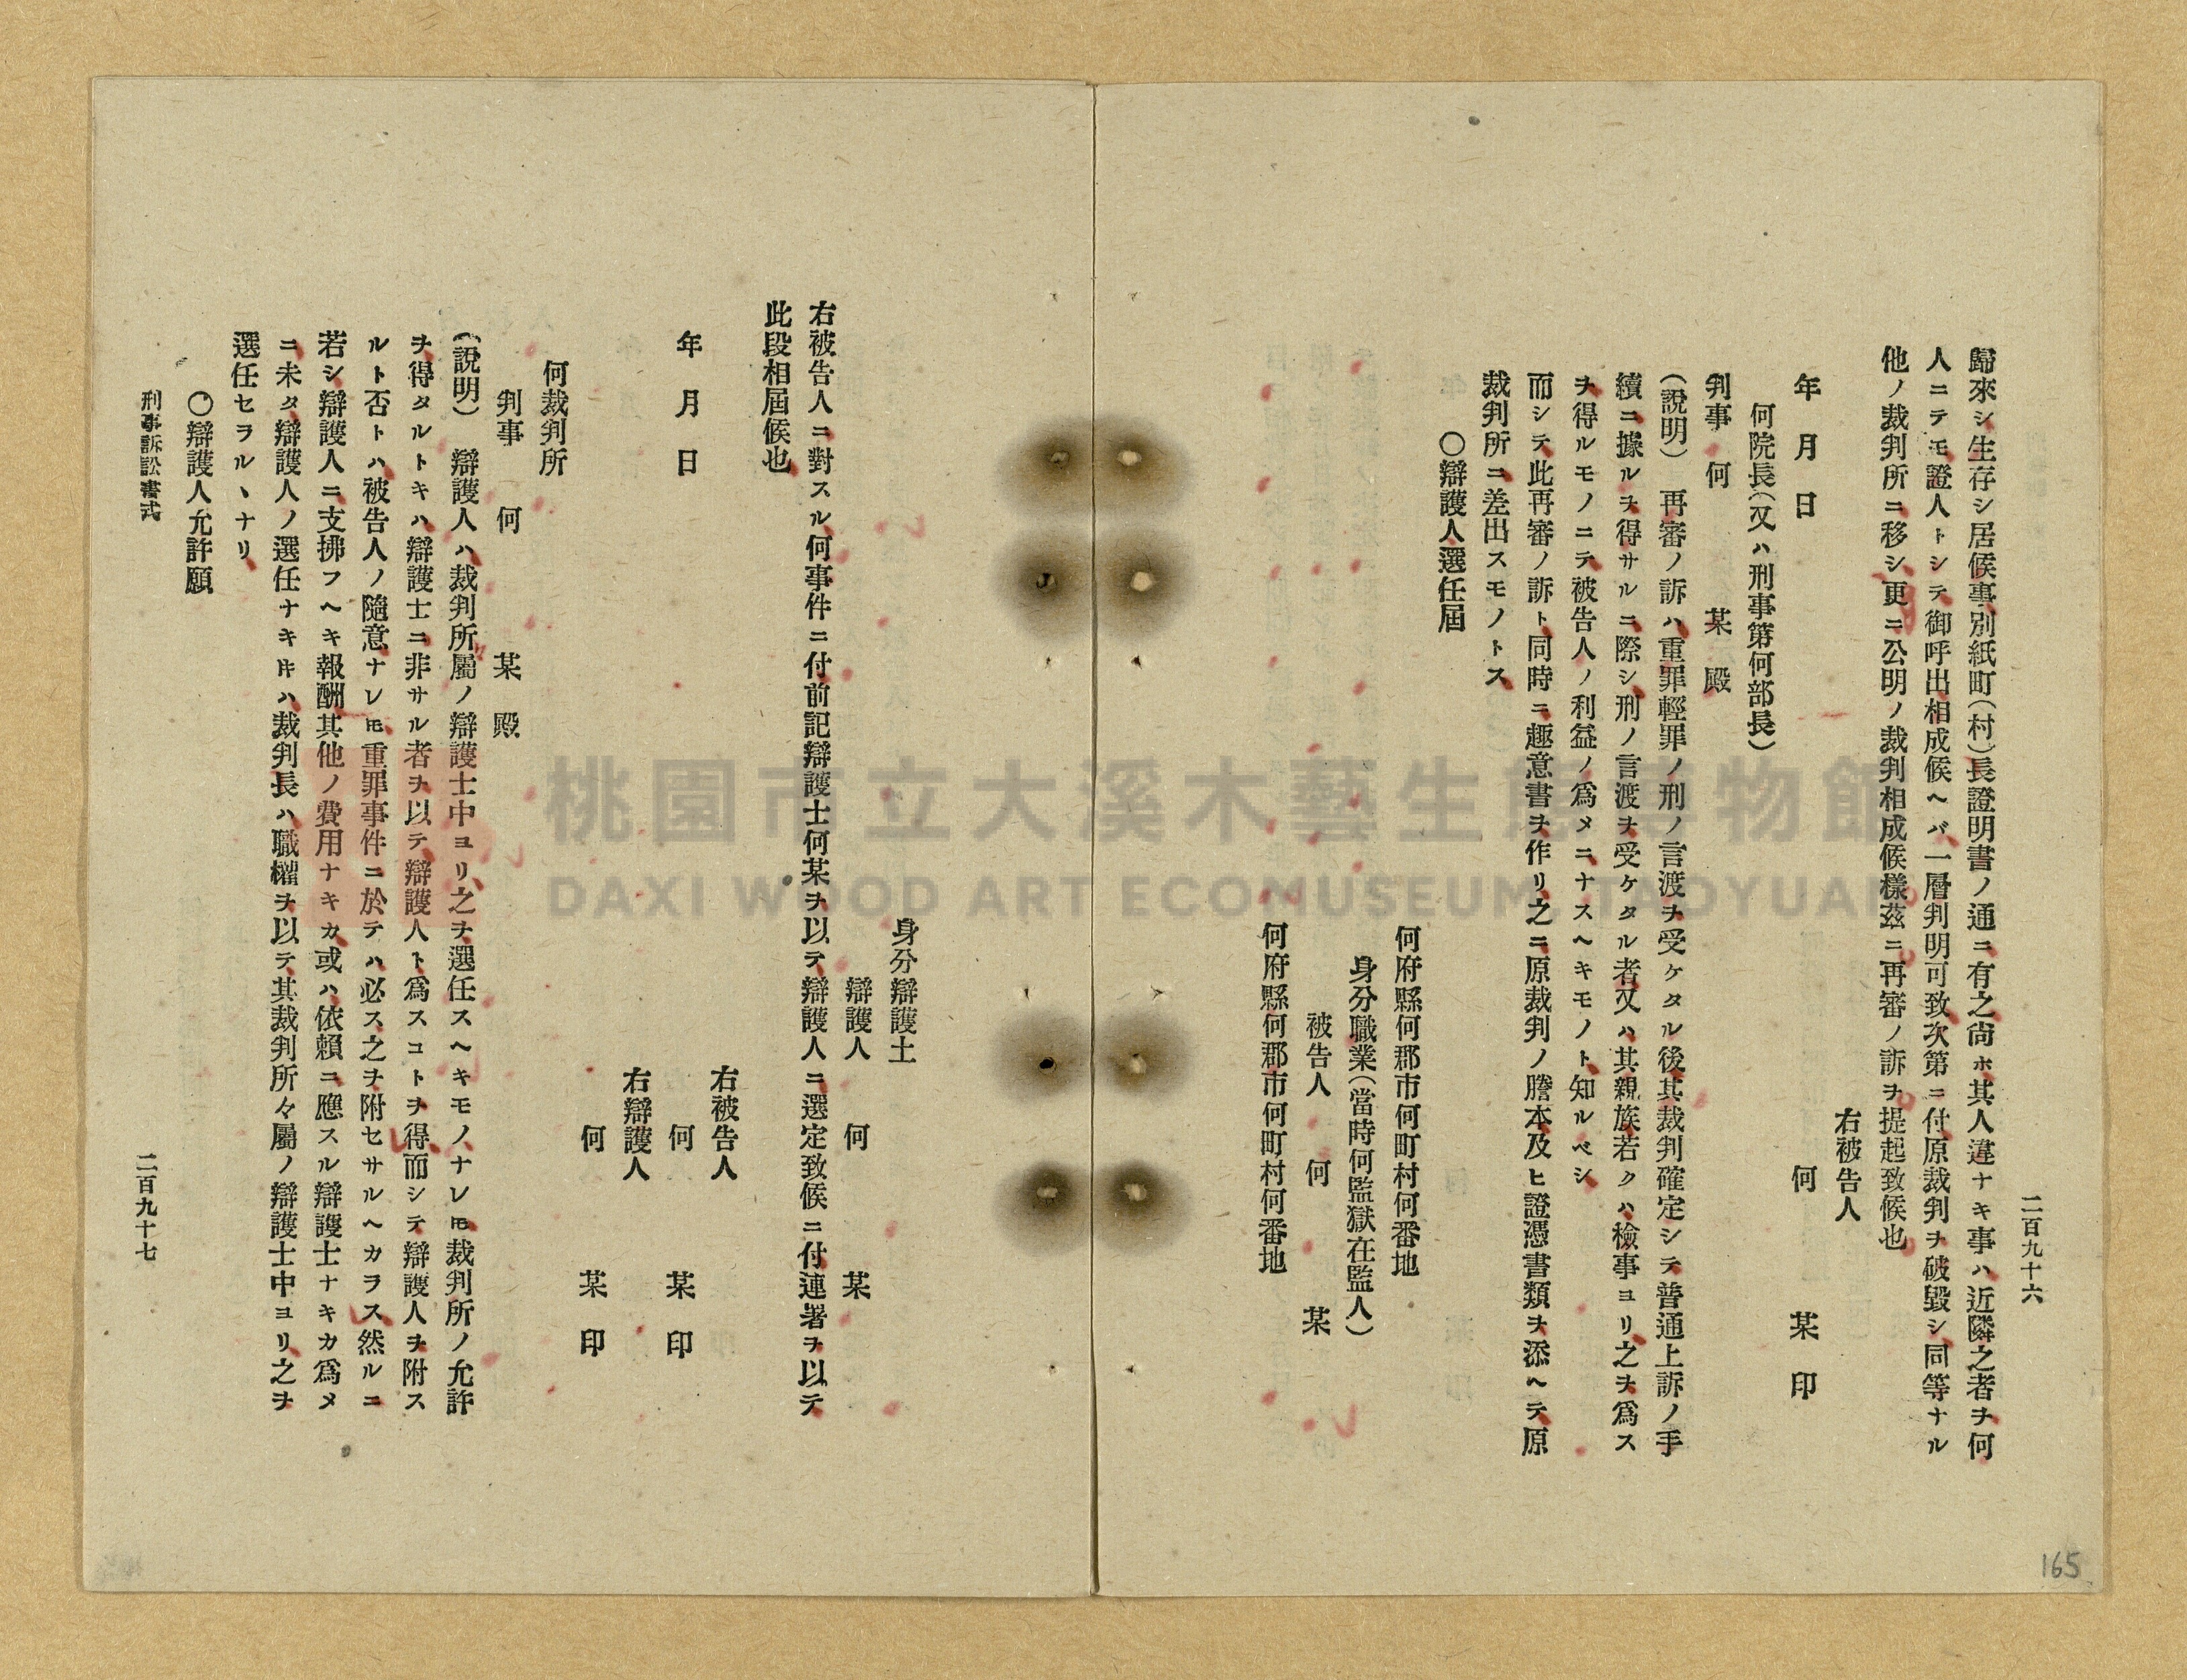 二百九十六
歸來シ生存シ居候事別紙町(村)長證明書ノ通ニ有之尙ホ其人違ナキ事ハ近隣之者ヲ何
人ニテモ證人トシテ御呼出相成候ヘバ一層判明可致次第ニ付原裁判ヲ破毀シ同等ナル
他ノ裁判所ニ移シ更ニ公明ノ裁判相成候樣茲ニ再審ノ訴ヲ提起致候也
右被告人
年 月 日 何 某 印
何院長(又ハ刑事第何部長)
判事 何 某 殿
(說明) 再審ノ訴ハ重罪輕罪ノ刑ノ言渡ヲ受ケタル後其裁判確定シテ普通上訴ノ手
續ニ據ルヲ得サルニ際シ刑ノ言渡ヲ受ケタル者又ハ其親族若クハ檢事ヨリ之ヲ爲ス
ヲ得ルモノニテ被告人ノ利益ノ爲メニナスヘキモノト知ルベシ
而シテ此再審ノ訴ト同時ニ趣意書ヲ作リ之ニ原裁判ノ謄本及ヒ證憑書類ヲ添ヘテ原
裁判所ニ差出スモノトス
〇辯護人選任屆
何府縣何郡市何町村何番地
身分職業(當時何監獄在監人)
被告人 何 某
何府縣何郡市何町村何番地
身分辯護士
辯護人 何 某
右被告人ニ對スル何事件ニ付前記辯護士何某ヲ以テ辯護人ニ選定致候ニ付連署ヲ以テ
此段相屆候也
右被告人
年 月 日 何 某 印
右辯護人
何 某 印
何裁判所
判事 何 某 殿
(說明) 辯護人ハ裁判所屬ノ辯護士中ヨリ之ヲ選任スヘキモノナレ𪜈裁判所ノ允許
ヲ得タルトキハ辯護士ニ非サル者ヲ以テ辯護人ト爲スコトヲ得而シテ辯護人ヲ附ス
ルト否トハ被告人ノ隨意ナレ𪜈重罪事件ニ於テハ必ス之ヲ附セサルヘカラス然ルニ
若シ辯護人ニ支拂フヘキ報酬其他ノ費用ナキカ或ハ依賴ニ應スル辯護士ナキカ爲メ
ニ未タ辯護人ノ選任ナキ片ハ裁判長ハ職權ヲ以テ其裁判所々屬ノ辯護士中ヨリ之ヲ
選任セラルヽナリ
〇辯護人允許願
刑事訴訟書式 二百九十七
165
桃園市立大溪木藝生態博物館
DAXI WOOD ART ECOMUSEUM, TAOYUAN